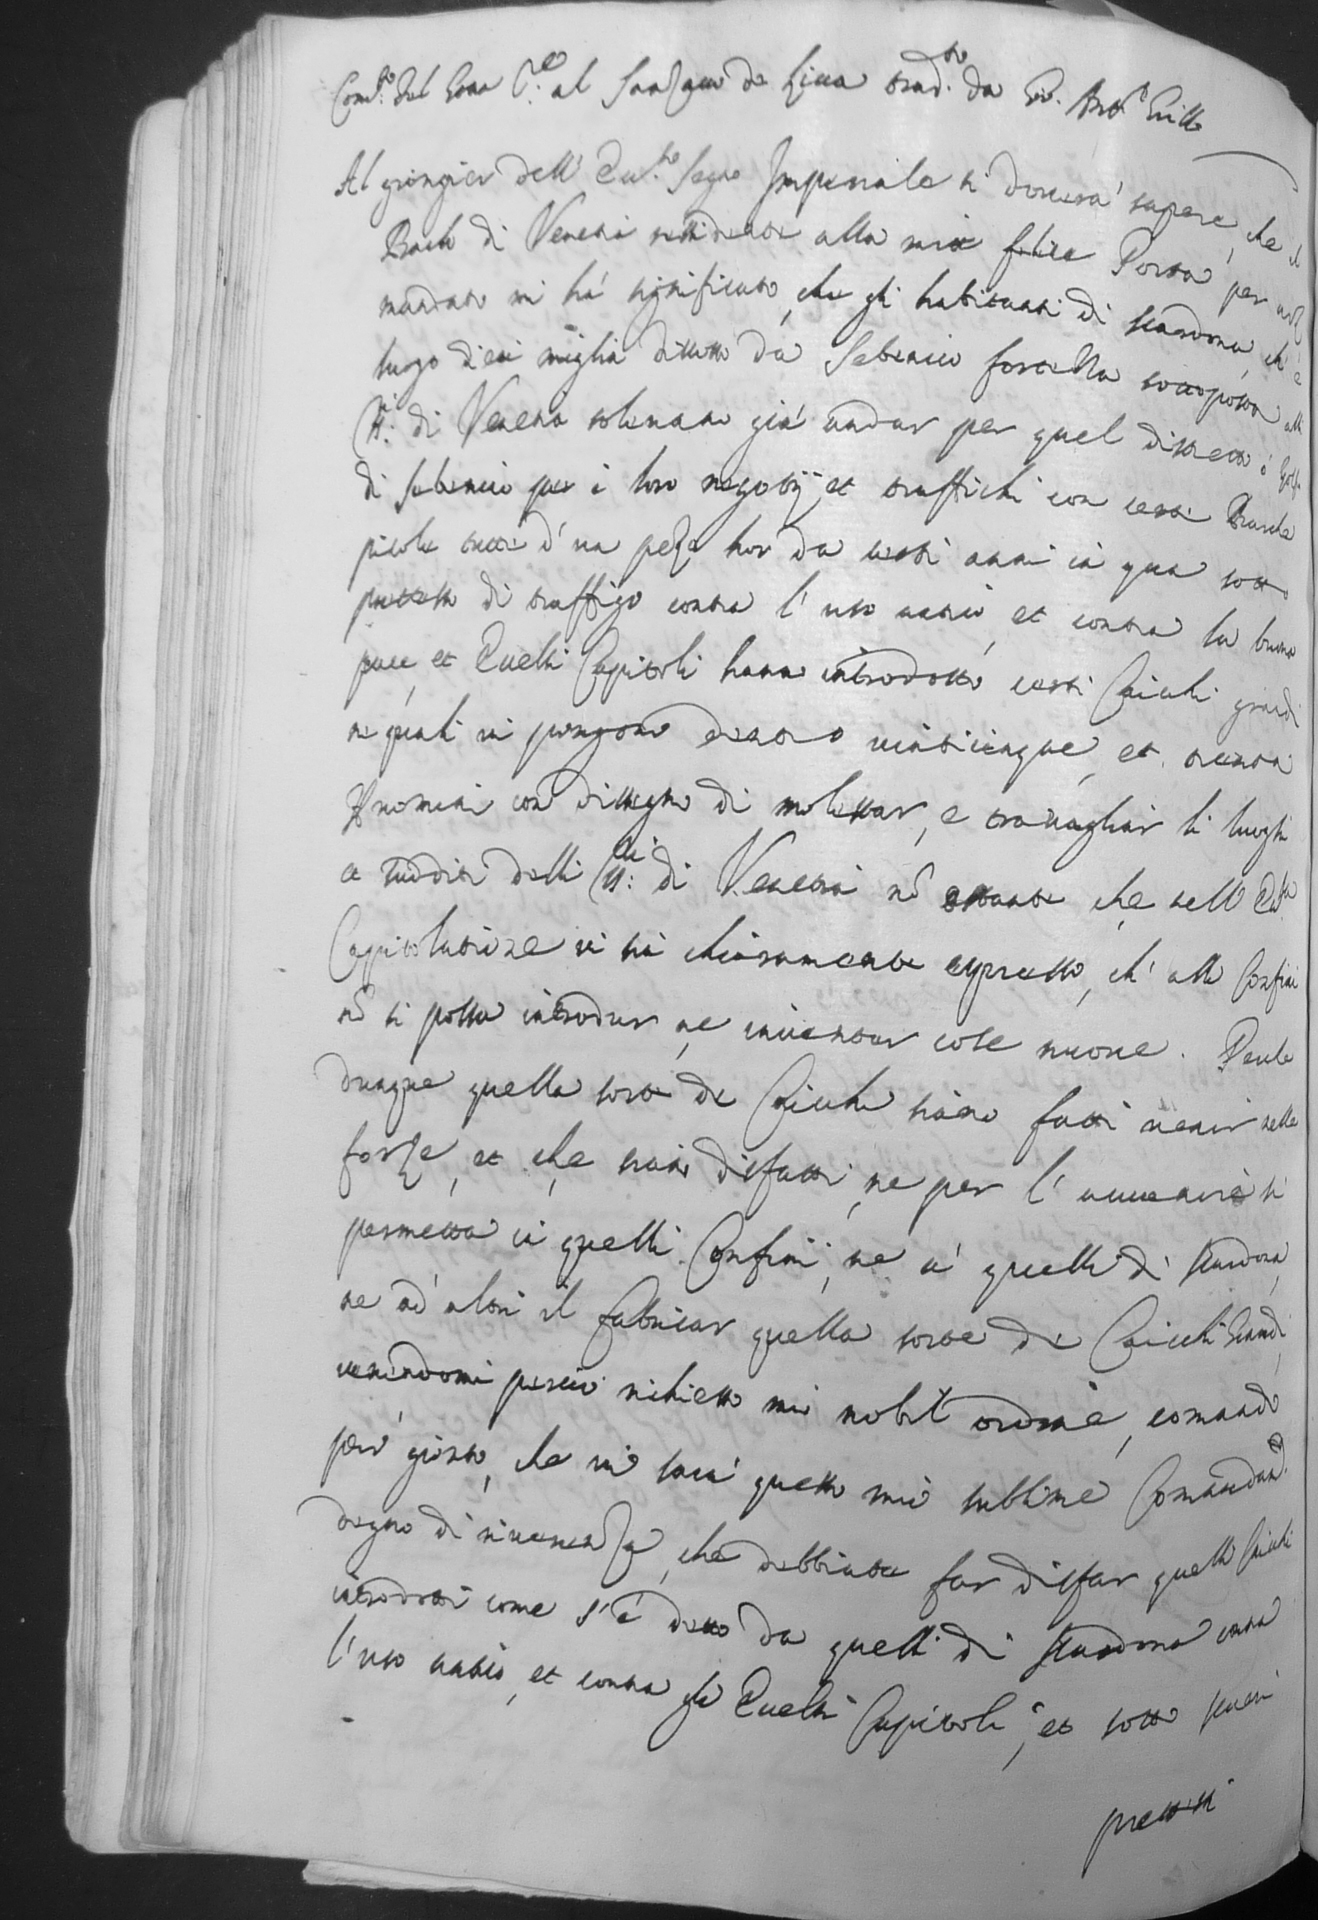 Com.to del Gran S.re al Sanzacco de Licca trad.to da Gio. Ant.o Grillo
Al gionger dell' Ecc.so Segno Imperiale si dovera' sapere, che il
Bailo di Venetia ressidente alla mia felice Porta' per
mandato mi há significato, che gli habitanti di Scardona, ch' è
luogo dieci miglia distante da Sebenico fortezza sottoposta alli
SS.ri di Venetia solevano giá andar per quel distretto ó Golfo
di Sebenico per i loro negotij, et traffichi con certe Barche
picole tutte d' un pezzo hor da certi anni in qua sotto
pretesto di traffigo contra l' uso antico, et contra la buona
pace, et Eccelsi Capitoli hanno introdotto certi Caichi grandi
ne quali vi pongono dentro vinticinque, et trenta
Huomini con dissegno di molestar, e travagliar li luoghi
e sudditi delli SS.ri di Venetia nõ ostante che nell' Ecc.sa
Capitulatione vi sia chiaramente espresso, ch' alli Confini
nõ si possa introdur, ne inventar cose nuove. Perche
dunque quella sorte de Caichi siano fatti venir nelle
forze, et che siano disfatti, ne per l' avvenire si
permetta in quelli Confini, ne a' quelli di Scardona,
ne ad' altri il fabricar quella sorte de Caicchi Grandi,
venendomi perciò richiesto mio nobil ordine, comando
però gionto, che vi sara' questo mio sublime Comandam.to
degno di riverenza, che debbiate far disfar quelli Caichi
introdotti come s' é detto da quelli di Scardona contra
l' uso antico, et contra gli Eccelsi Capitoli, et sotto
pretesti